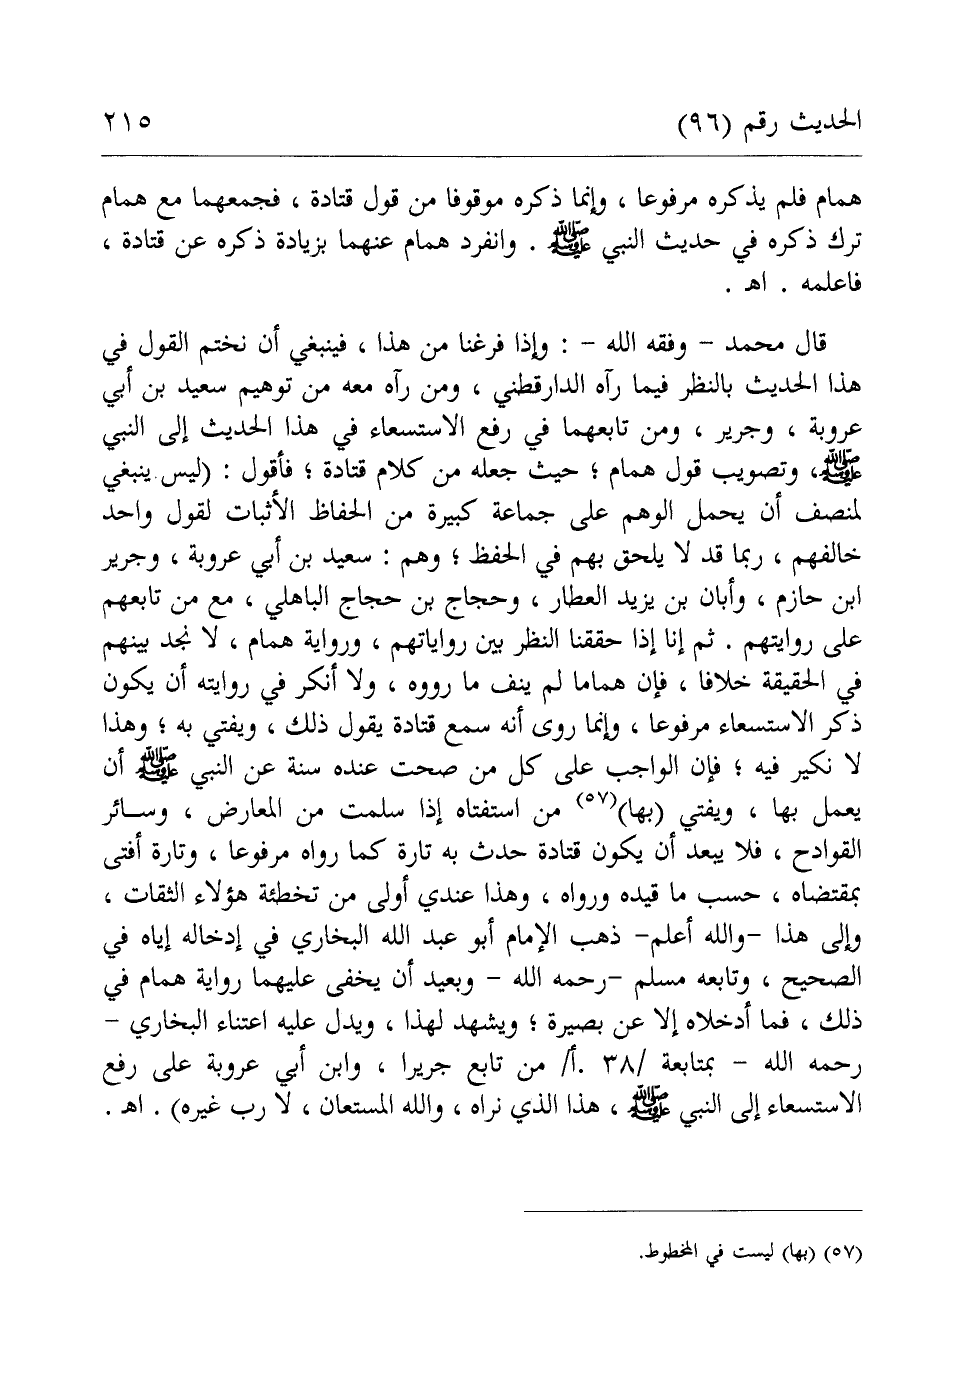 الحديث رقم (٩٦) ٢١٥
همام فلم يذكره مرفوعا ، وإنما ذكره موقوفا من قول قتادة ، فجمعهما مع همام
ترك ذكره في حديث النبي ﷺ . وانفرد همام عنهما بزيادة ذكره عن قتادة ،
فاعلمه . اهـ .
قال محمد – وفقه الله – : وإذا فرغنا من هذا ، فينبغي أن نختم القول في
هذا الحديث بالنظر فيما رآه الدارقطني ، ومن رآه معه من توهيم سعيد بن أبي
عروبة ، وجرير ، ومن تابعهما في رفع الاستسعاء في هذا الحديث إلى النبي
ﷺ، وتصويب قول همام ؛ حيث جعله من كلام قتادة ؛ فأقول : (ليس ينبغي
لمنصف أن يحمل الوهم على جماعة كبيرة من الحفاظ الأثبات لقول واحد
خالفهم ، ربما قد لا يلحق بهم في الحفظ ؛ وهم : سعيد بن أبي عروبة ، وجرير
ابن حازم ، وأبان بن يزيد العطار ، وحجاج بن حجاج الباهلي ، مع من تابعهم
على روايتهم . ثم إنا إذا حققنا النظر بين رواياتهم ، ورواية همام ، لا نجد بينهم
في الحقيقة خلافا ، فإن هماما لم ينف ما رووه ، ولا أنكر في روايته أن يكون
ذكر الاستسعاء مرفوعا ، وإنما روى أنه سمع قتادة يقول ذلك ، ويفتي به ؛ وهذا
لا نكير فيه ؛ فإن الواجب على كل من صحت عنده سنة عن النبي ﷺ أن
يعمل بها ، ويفتي (بها)(٥٧) من استفتاه إذا سلمت من المعارض ، وسـائر
القوادح ، فلا يبعد أن يكون قتادة حدث به تارة كما رواه مرفوعا ، وتارة أفتى
بمقتضاه ، حسب ما قيده ورواه ، وهذا عندي أولى من تخطئة هؤلاء الثقات ،
وإلى هذا –والله أعلم– ذهب الإمام أبو عبد الله البخاري في إدخاله إياه في
الصحيح ، وتابعه مسلم –رحمه الله – وبعيد أن يخفى عليهما رواية همام في
ذلك ، فما أدخلاه إلا عن بصيرة ؛ ويشهد لهذا ، ويدل عليه اعتناء البخاري –
رحمه الله – بمتابعة /٣٨ .أ/ من تابع جريرا ، وابن أبي عروبة على رفع
الاستسعاء إلى النبي ﷺ ، هذا الذي نراه ، والله المستعان ، لا رب غيره) . اهـ .
(٥٧) (بها) ليست في المخطوط.